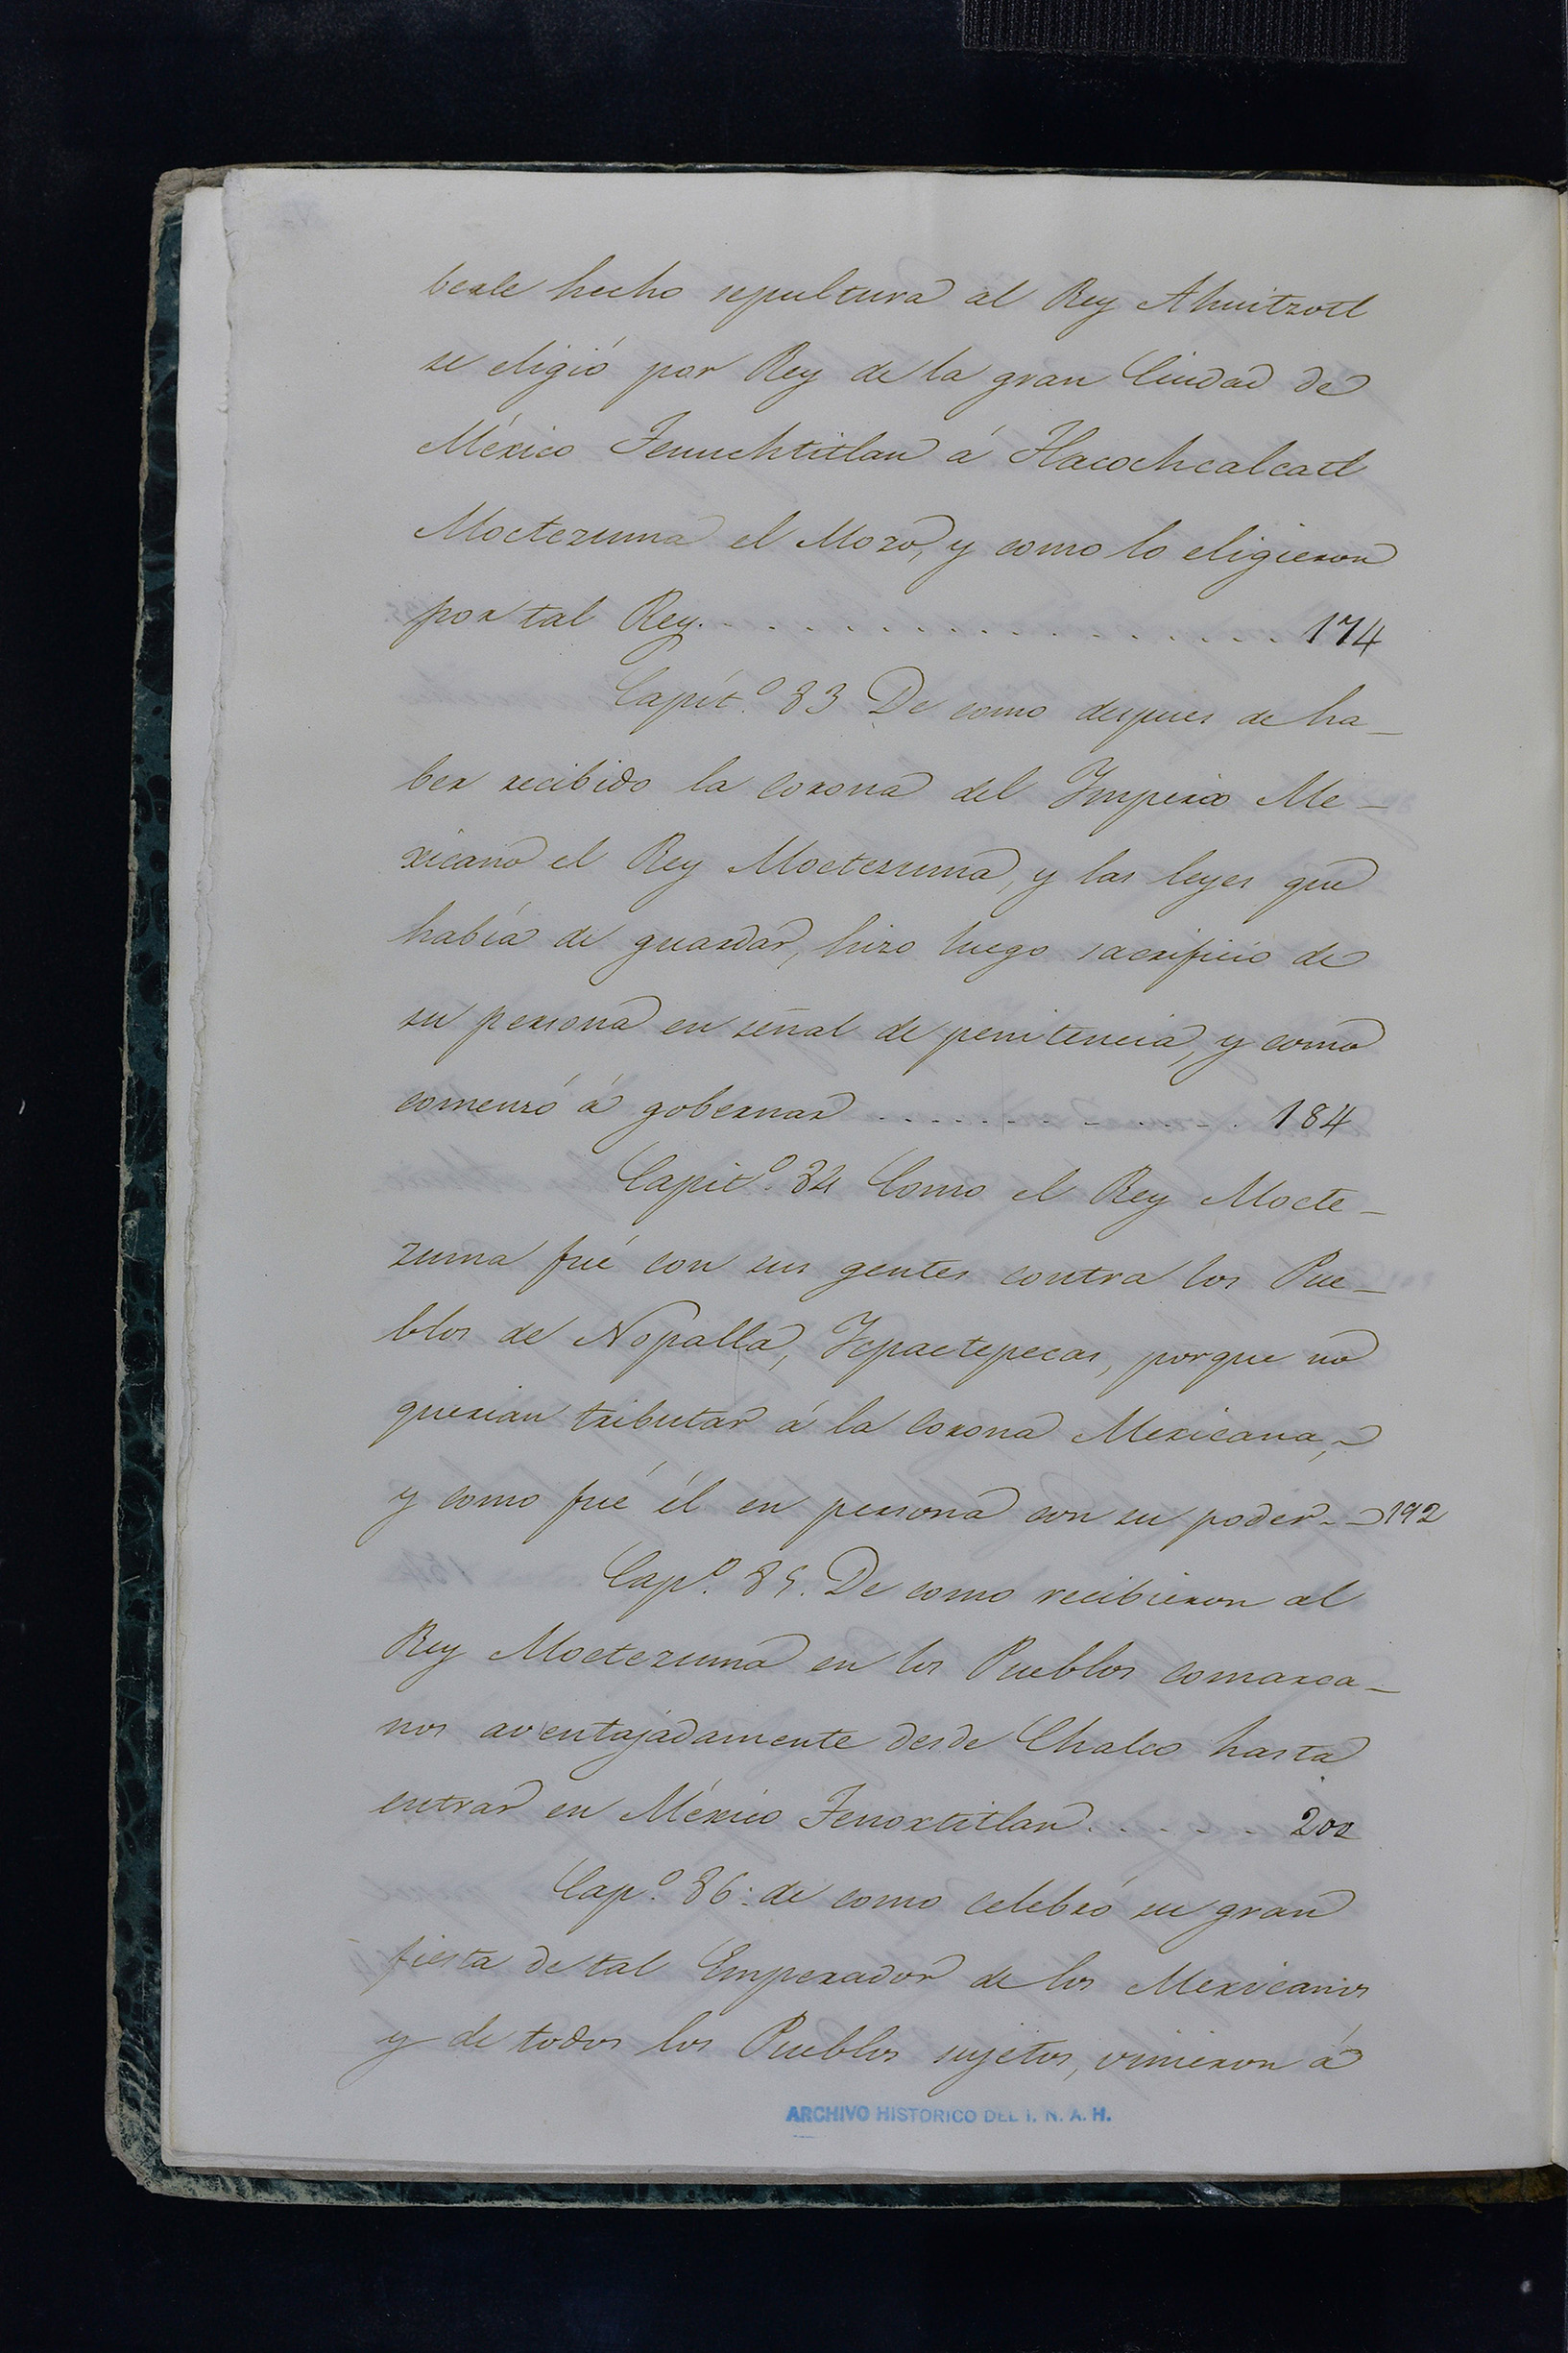 berle hecho sepultura al Rey Ahuitzotl
se eligió por Rey de la gran Ciudad de
México Tenuchtitlan á Tlacochcalcatl
Moctezuma el Mozo, y como lo eligieron
por tal Rey. . . . . . . . . . . . . . . . 174
Capít.º 83 De como despues de ha_
ber recibido la corona del Imperio Me_
xicano el Rey Moctezuma, y las leyes que
había de guardar, hizo luego sacrificio de
su persona en señal de penitencia, y como
comenzó á gobernar . . . . . . . . . . 184
Capit.º 84 Como el Rey Mocte_
zuma fué con sus gentes contra los Pue_
blos de Nopalla, Icpactepecas, porque no
querian tributar á la Corona Mexicana,
y como fué él en persona con su poder_ _ 192
Cap.º 85. De como recibieron al
Rey Moctezuma en los Pueblos comarca_
nos aventajadamente desde Chalco hasta
entrar en México Tenoxtitlan . . . . . 202
Cap.º 86. de como celebró su gran
fiesta de tal Emperador de los Mexicanos
y de todos los Pueblos sujetos, vinieron á
ARCHIVO HISTORICO DEL I. N. A. H.